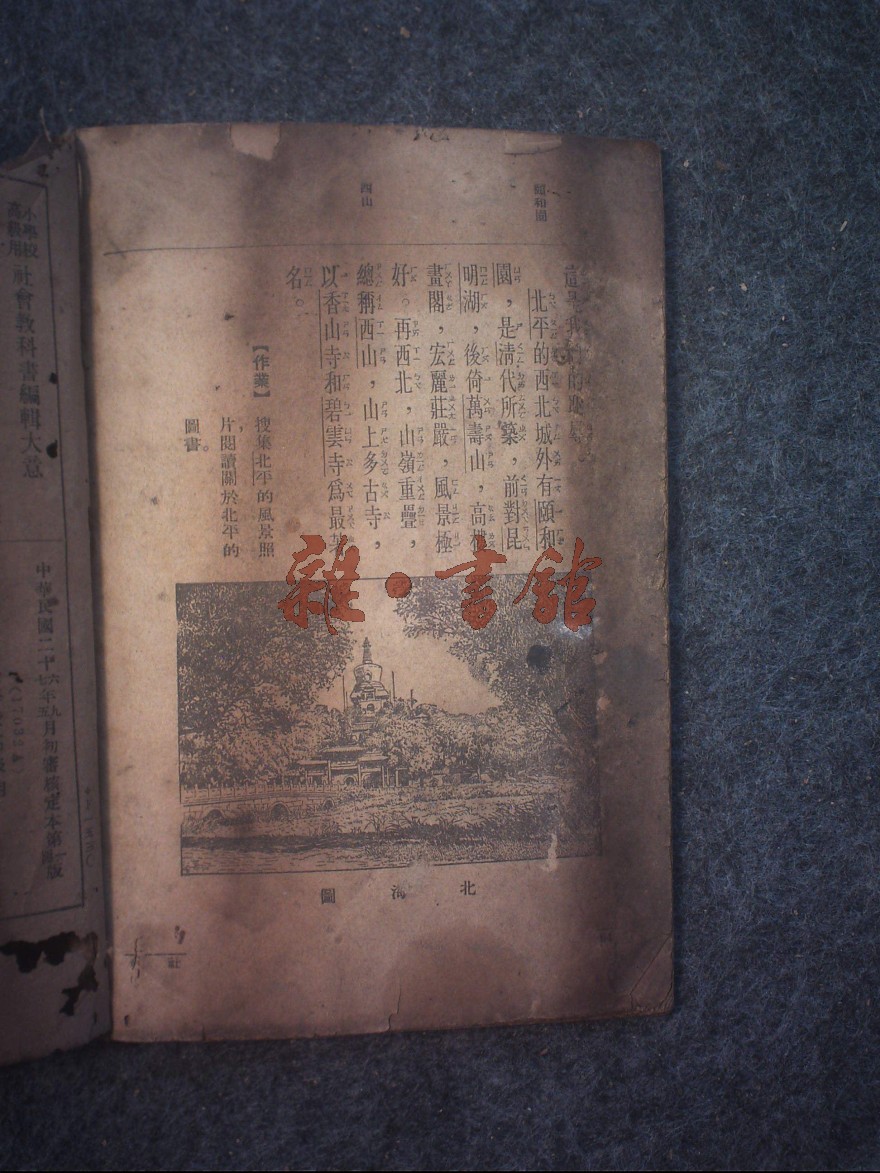 頤和園
西山
北平的西北城外有頤和
園，是清代所築，前對昆
明湖，後倚萬壽山，高樓
畫閣，宏麗莊嚴，風景極
好。再西北，山嶺重疊，
總稱西山，山上多古寺，
以香山寺和碧雲寺爲最著
名。
【作業】 搜集北平的風景照
片，閱讀關於北平的
圖書。
北海圖
雜·書館
小學校
高級用
社會教科書編輯大意
中華民國二十六年九月初審核定本第一版